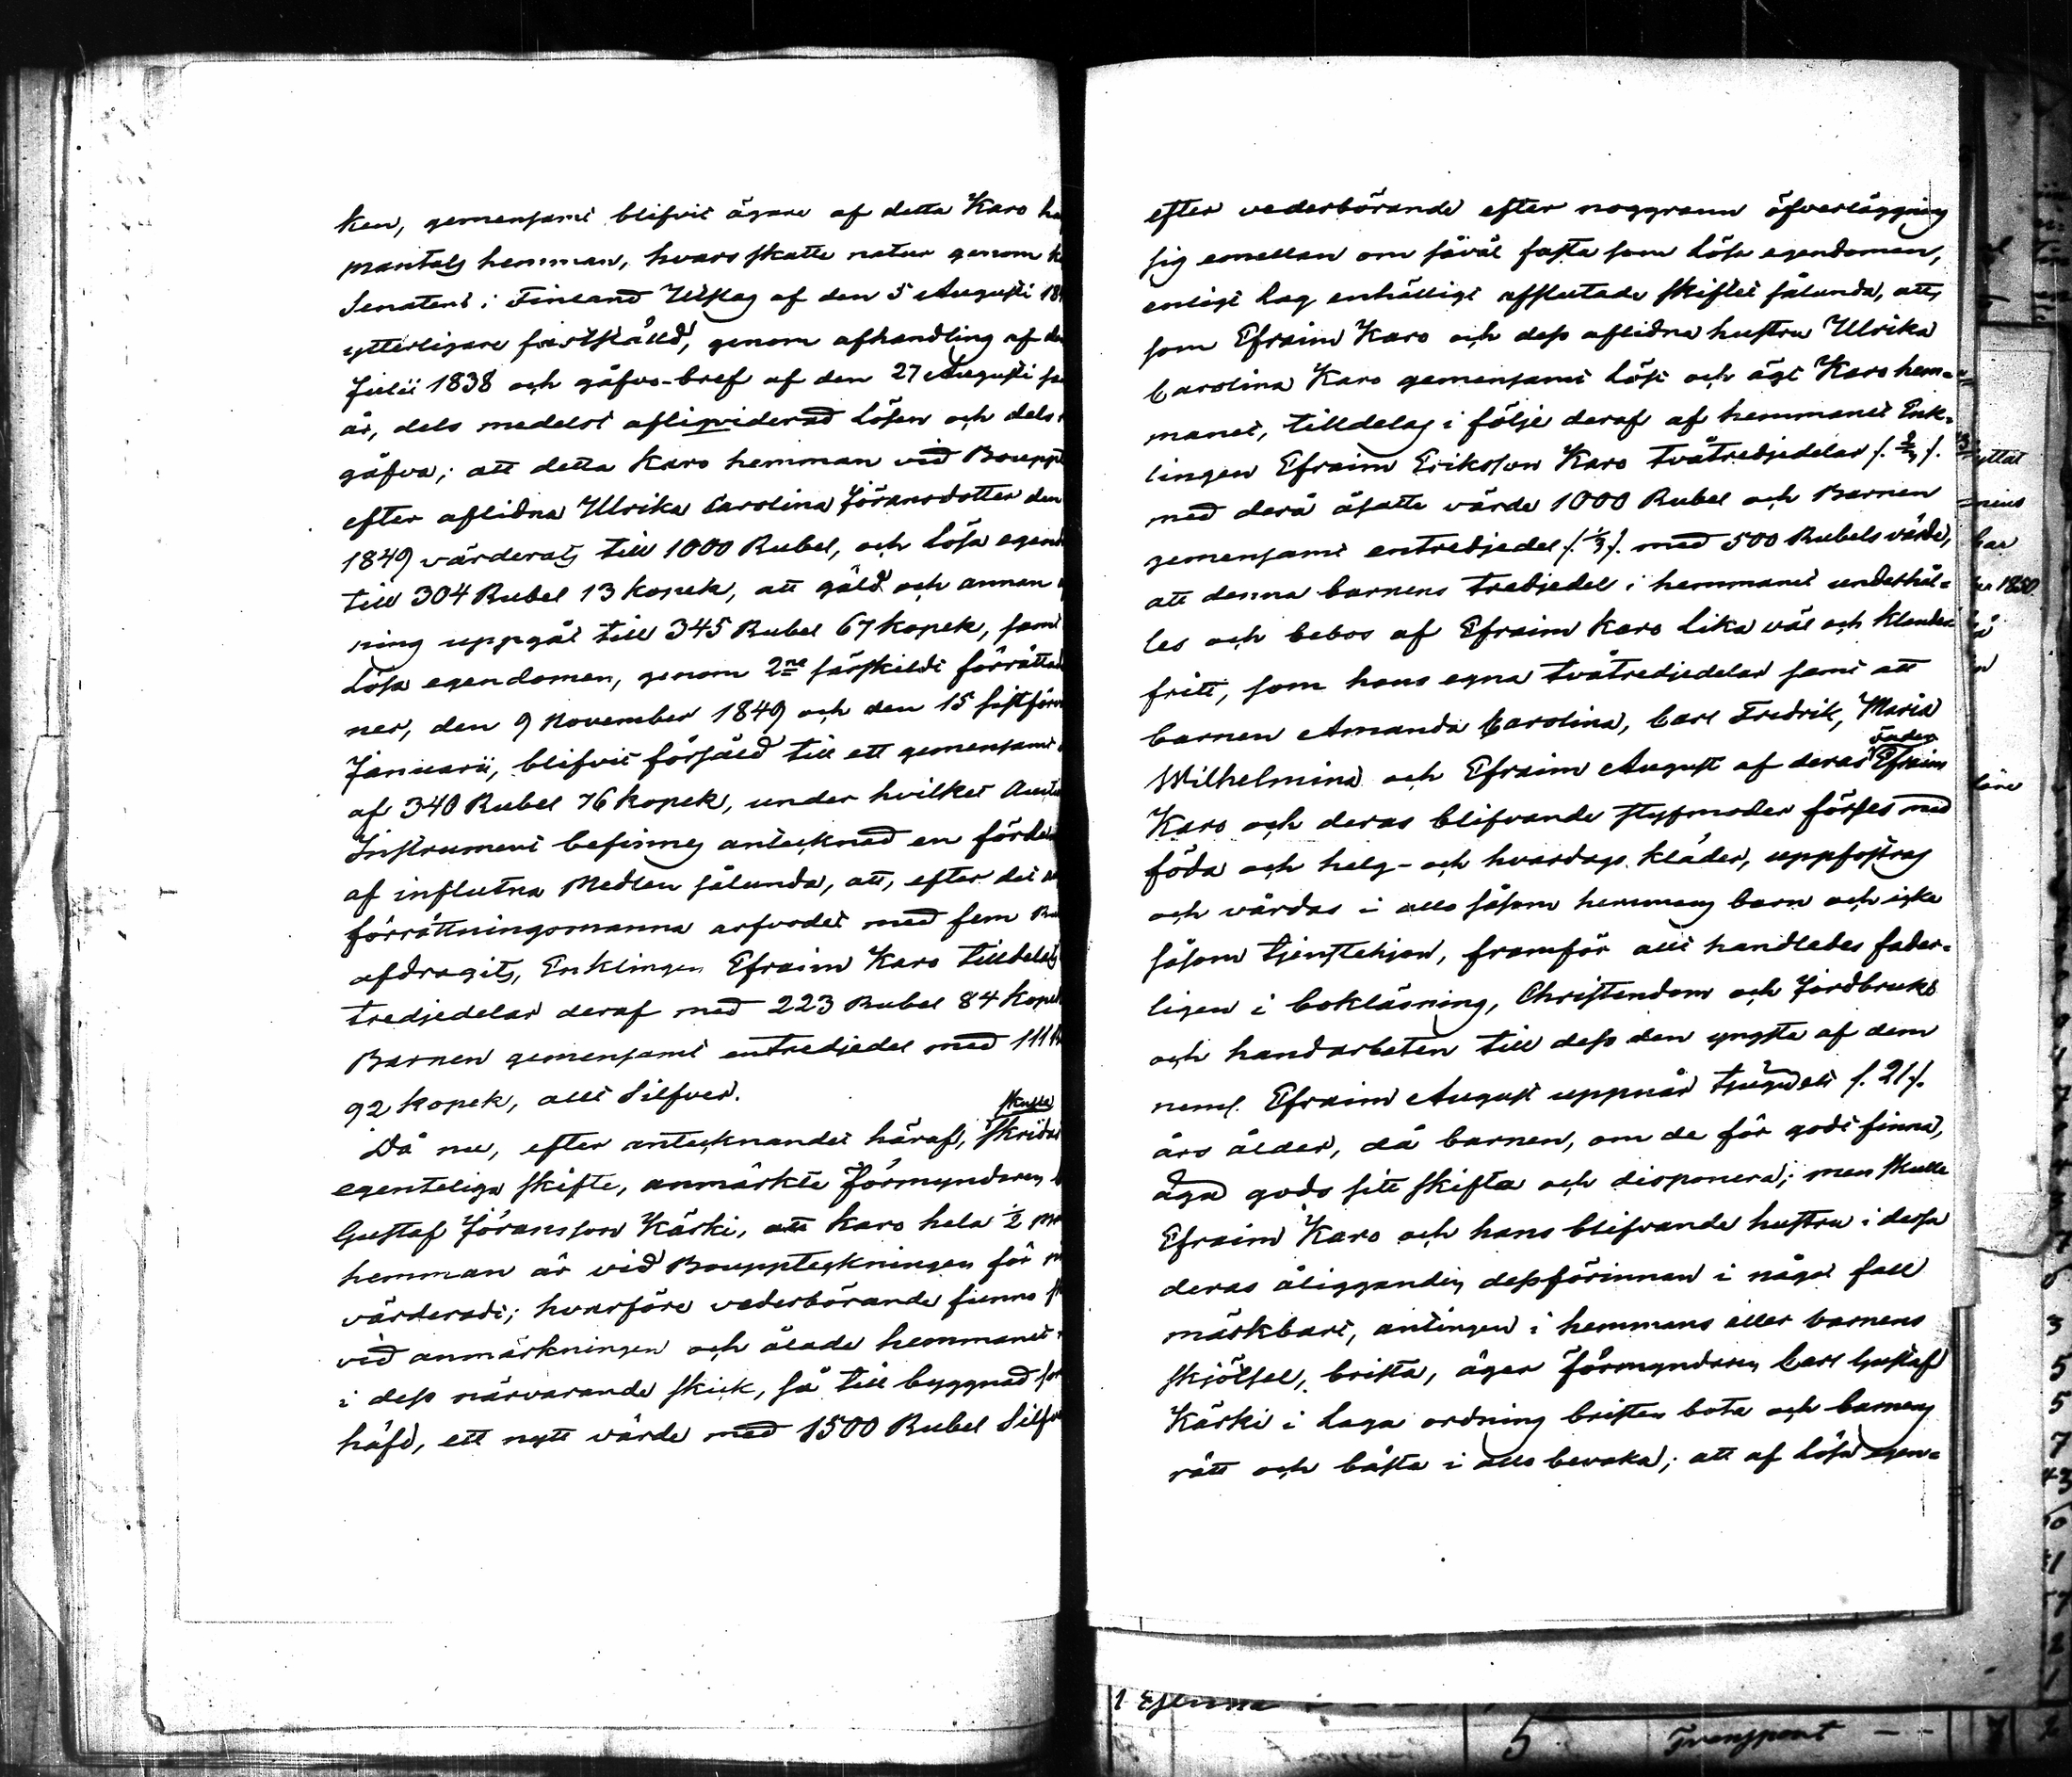 ken, gemensamt blifvit ägare af detta Karo
mantals hemman, hvars skatte natur genom
Senatens i Finland Utslag af den 5 Augusti 18
ytterligare fastställd, genom afhandling af
Julii 1838 och gåfvo-bref af den 27 Augusti
år, dels medelst afliqviderad lösen och dels
gåfva; att detta Karo hemman vid Boupp
efter aflidna Ulrika Carolina Jöransdotter den
1849 värderats till 1000 Rubel, och lösa egend
till 304 Rubel 13 kopek, att gäld och annan
ning uppgåt till 345 Rubel 67 kopek, samt
lösa egendomen, genom 2ne särskildt förrättad
ner, den 9 November 1849 och den 15 sistför
Januarii, blifvit försåld till ett gemensamt
af 340 Rubel 76 kopek, under hvilket Auct
Instrument befinnes antecknad en fördel
af influtna Medlen sålunda, att, efter det
förrättningsmanna arfvodet med fem
afdragits, Enklingen Efraim Karo tilldelats
tredjedelar deraf med 223 Rubel 84 kopek
Barnen gemensamt entredjedel med 111
92 kopek, allt Silfver.
skulle
Då nu, efter antecknandet häraf, skridas
egenteliga skifte, anmärkte Förmyndaren
Gustaf Jöransson Kärki, att Karo hela ½
hemman är vid Bouppteckningen för
värderadt; hvarföre vederbörande funno
vid anmärkningen och ålade hemmanet
i dess närvarande skick, så till byggnad
häfd, ett nytt värde med 1500 Rubel Silfv
efter vederbörande efter noggrann öfverläggning
sig emellan om såväl fasta som lösa egendomen,
enligt lag enhälligt afslutade skiftet sålunda, att,
som Efraim Karo och dess aflidna hustru Ulrika
Carolina Karo gemensamt löst och ägt Karo hem=
manet, tilldelas i följe deraf af hemmanet Enk=
lingen Efraim Eriksson Karo tvåtredjedelar /. 2/3 /.
med derå åsatte värde 1000 Rubel och Barnen
gemensamt entredjedel /. 1/3 /. med 500 Rubels värde,
att denna barnens tredjedel i hemmanet underhål=
les och bebos af Efraim Karo lika väl och klander
fritt, som hans egna tvåtredjedelar samt att
barnen Amanda Carolina, Carl Fredrik, Maria
fader
Wilhelmina och Efraim August af deras Efraim
Karo och deras blifvande styfmoder förses med
föda och helg- och hvardags kläder, uppfostras
och vårdas i allo såsom hemmans barn och icke
såsom tjenstehjon, framför allt handledes fader=
ligen i bokläsning, Christendom och Jordbruks
och handarbeten till dess den yngsta af dem
neml. Efraim August uppnår tjuguett /. 21 /.
års ålder, då barnen, om de för godt finna,
äga gods sitt skifta och disponera; men skulle
Efraim Karo och hans blifvande hustru i dessa
deras åliggandes dessförinnan i något fall
märkbart, antingen i hemmans eller barnens
skjötsel, brista, äger Förmyndaren Carl Gustaf
Kärki i laga ordning bristen bota och barnens
rätt och bästa i allo bevaka; att af lösa egen=
1850
5 Transport - -